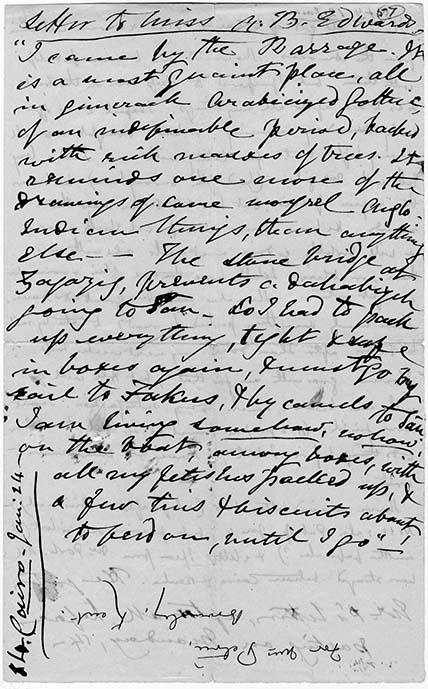 Letter to Miss A. B. Edwards
57
"I came by the Barrage. It
is a most quaint place, all
in gimcrack Arabicized Gothic,
of an indefinable period, backed
with rich masses of trees. It
reminds one more of the
drawings of some mongrel Anglo-
Indian things, than anything
else — The stone bridge at
Zagazig, prevents a dahabiyeh
going to San — So I had to pack
up everything, tight &
in boxes again, & must go by
rail to Fakus, & by camels to San.
I am living somehow, nohow,
on the boat among boxes, with
all my fetishes packed up, &
a few tins & biscuits about,
to be on, until I go"—
Cairo - Jan: 24
84.
for